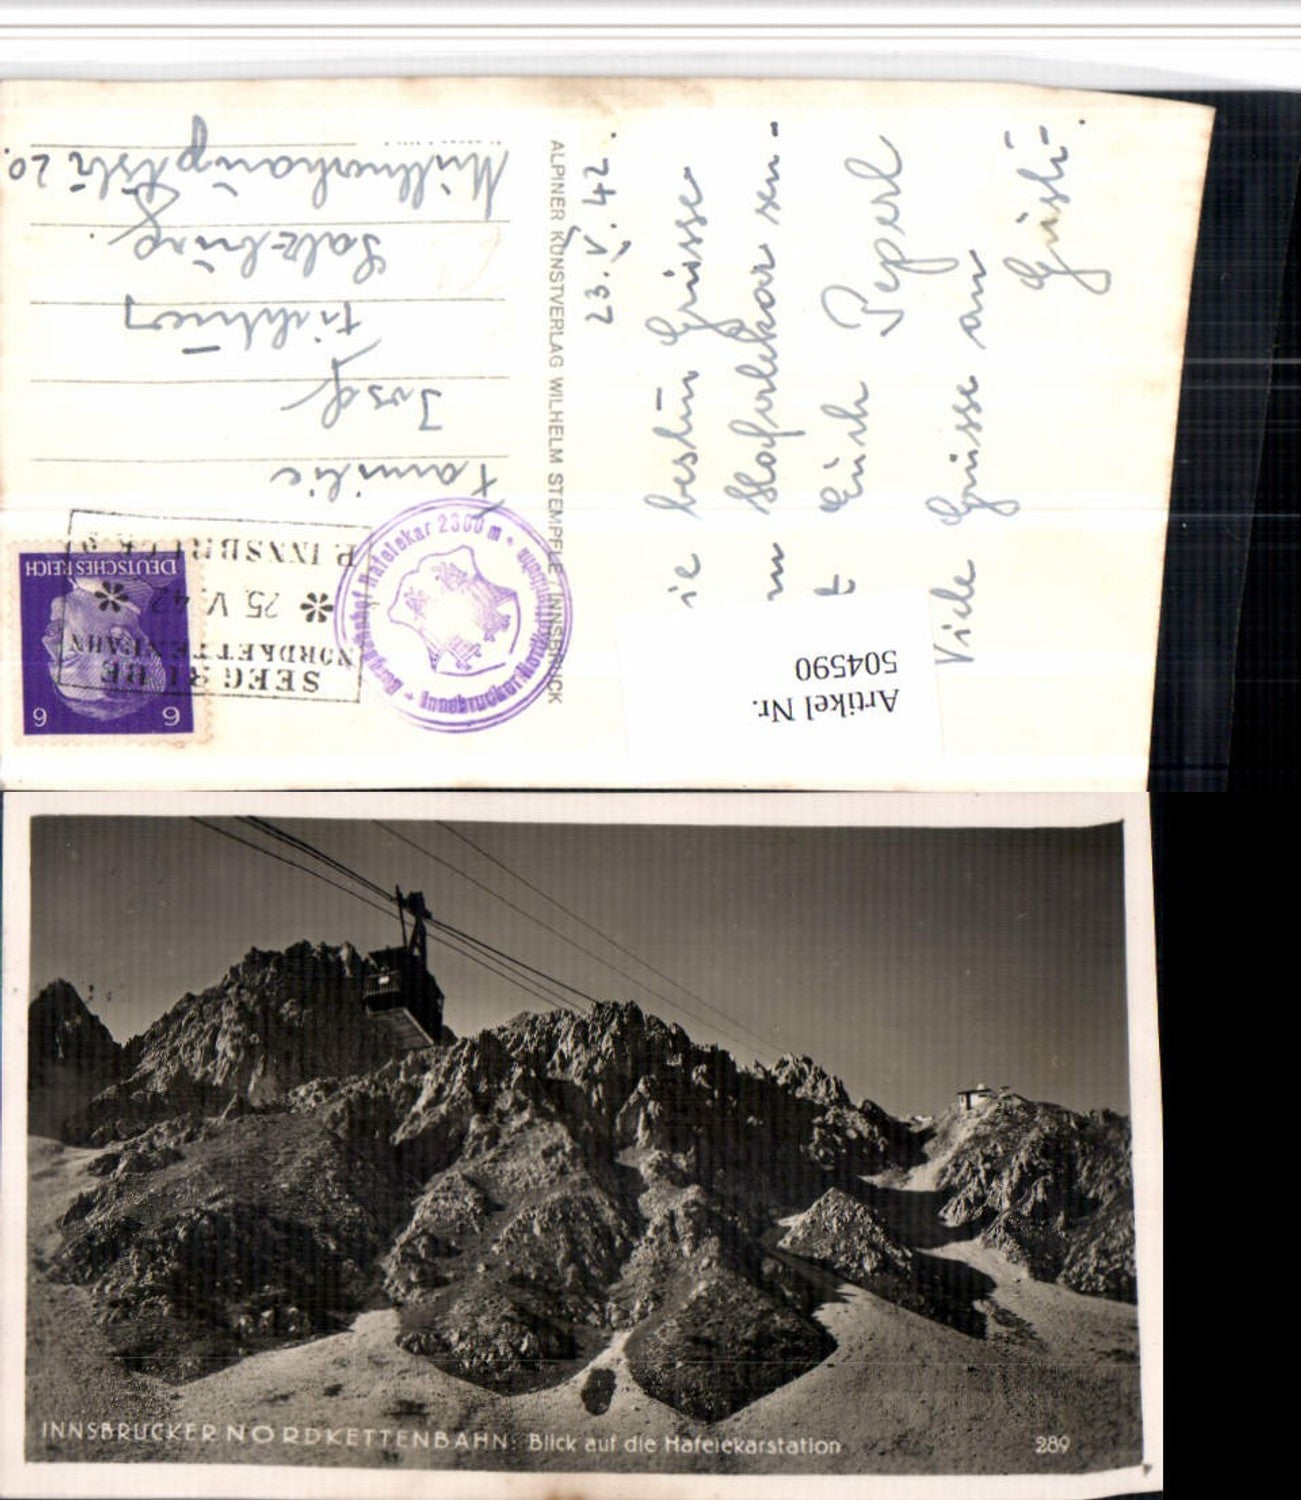 23. V. 42.
ie besten Grüsse
Hafelekar sen-
t Euch Peperl
Viele Grüsse an
Gusti.
ALPINER KUNSTVERLAG WILHELM STEMPFLE, INNSBRUCK
DEUTSCHES REICH
6 6
SEEGRUBE
NORDKETTENBAHN
25. V. 42
P. INNSBRUCK 2
Hafelekar 2300 m
Innsbrucker Nordkettenbahn
Familie
Josef
Salzburg.
Müllnerhauptstr 20.
Artikel Nr.
504590
INNSBRUCKER NORDKETTENBAHN: Blick auf die Hafelekarstation
289